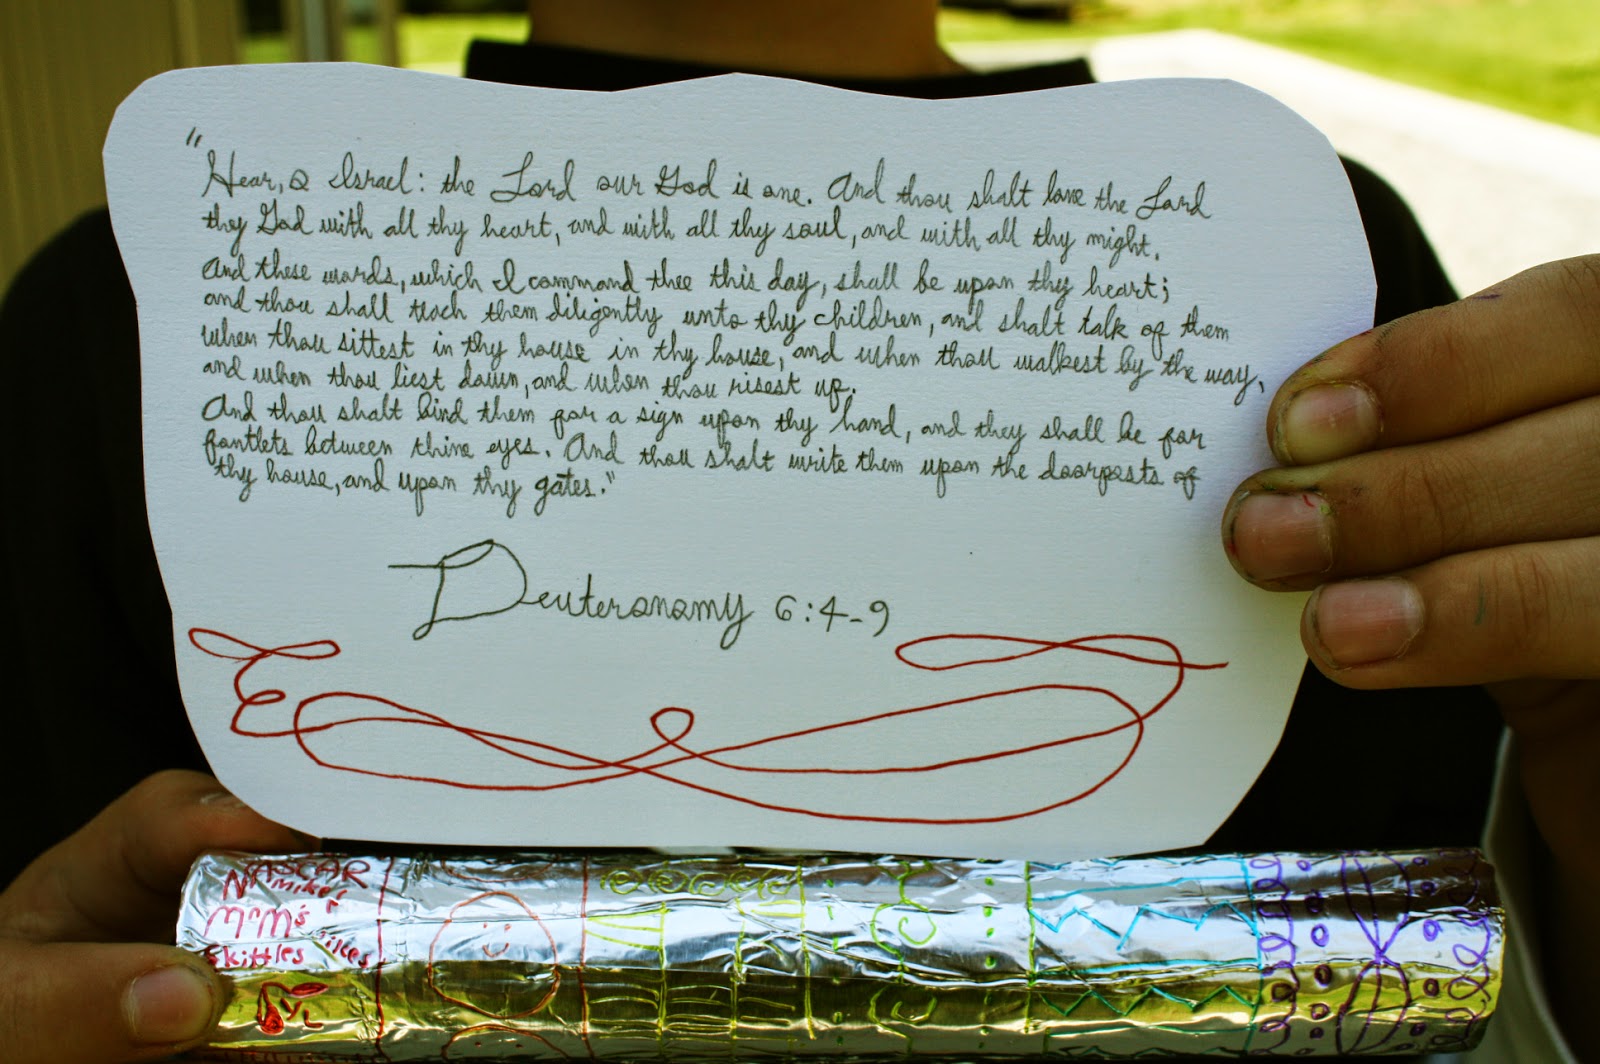 "Hear, O Israel: the Lord our God is one. And thou shalt love the Lord
thy God with all thy heart, and with all thy soul, and with all thy might.
And these words, which I command thee this day, shall be upon thy heart;
and thou shall teach them diligently unto thy children, and shalt talk of them
when thou sittest in thy house in thy house, and when thou walkest by the way,
and when thou liest down, and when thou risest up.
And thou shalt bind them for a sign upon thy hand, and they shall be for
fontlets between thine eyes. And thou shalt write them upon the doorposts of
thy house, and upon thy gates."
Deuteronomy 6:4-9
NASCAR
MnM's
Skittles